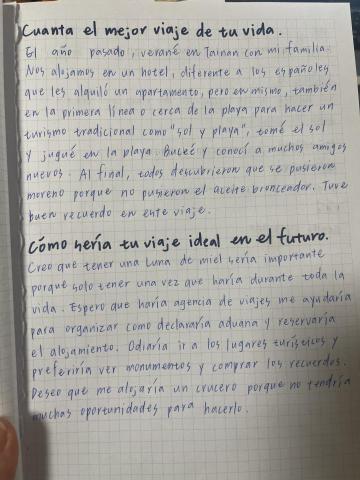 Cuanta el mejor viaje de tu vida.
El año pasado, verané en Tainan con mi familia.
Nos alojamos en un hotel, diferente a los españoles
que les alquiló un apartamento, pero en mismo, también
en la primera línea o cerca de la playa para hacer un
turismo tradicional como "sol y playa", tomé el sol
y jugué en la playa. Buceé y conocí a muchos amigos
nuevos. Al final, todos descubrieron que se pusieron
moreno porque no pusieron el aceite bronceador. Tuve
buen recuerdo en este viaje.
Cómo sería tu viaje ideal en el futuro.
Creo que tener una Luna de miel sería importante
porque solo tener una vez que haría durante toda la
vida. Espero que haría agencia de viajes me ayudaría
para organizar como declararía aduana y reservaría
el alojamiento. Odiaría ir a los lugares turísticos y
preferiría ver monumentos y comprar los recuerdos.
Deseo que me alojaría un crucero porque no tendría
muchas oportunidades para hacerlo.